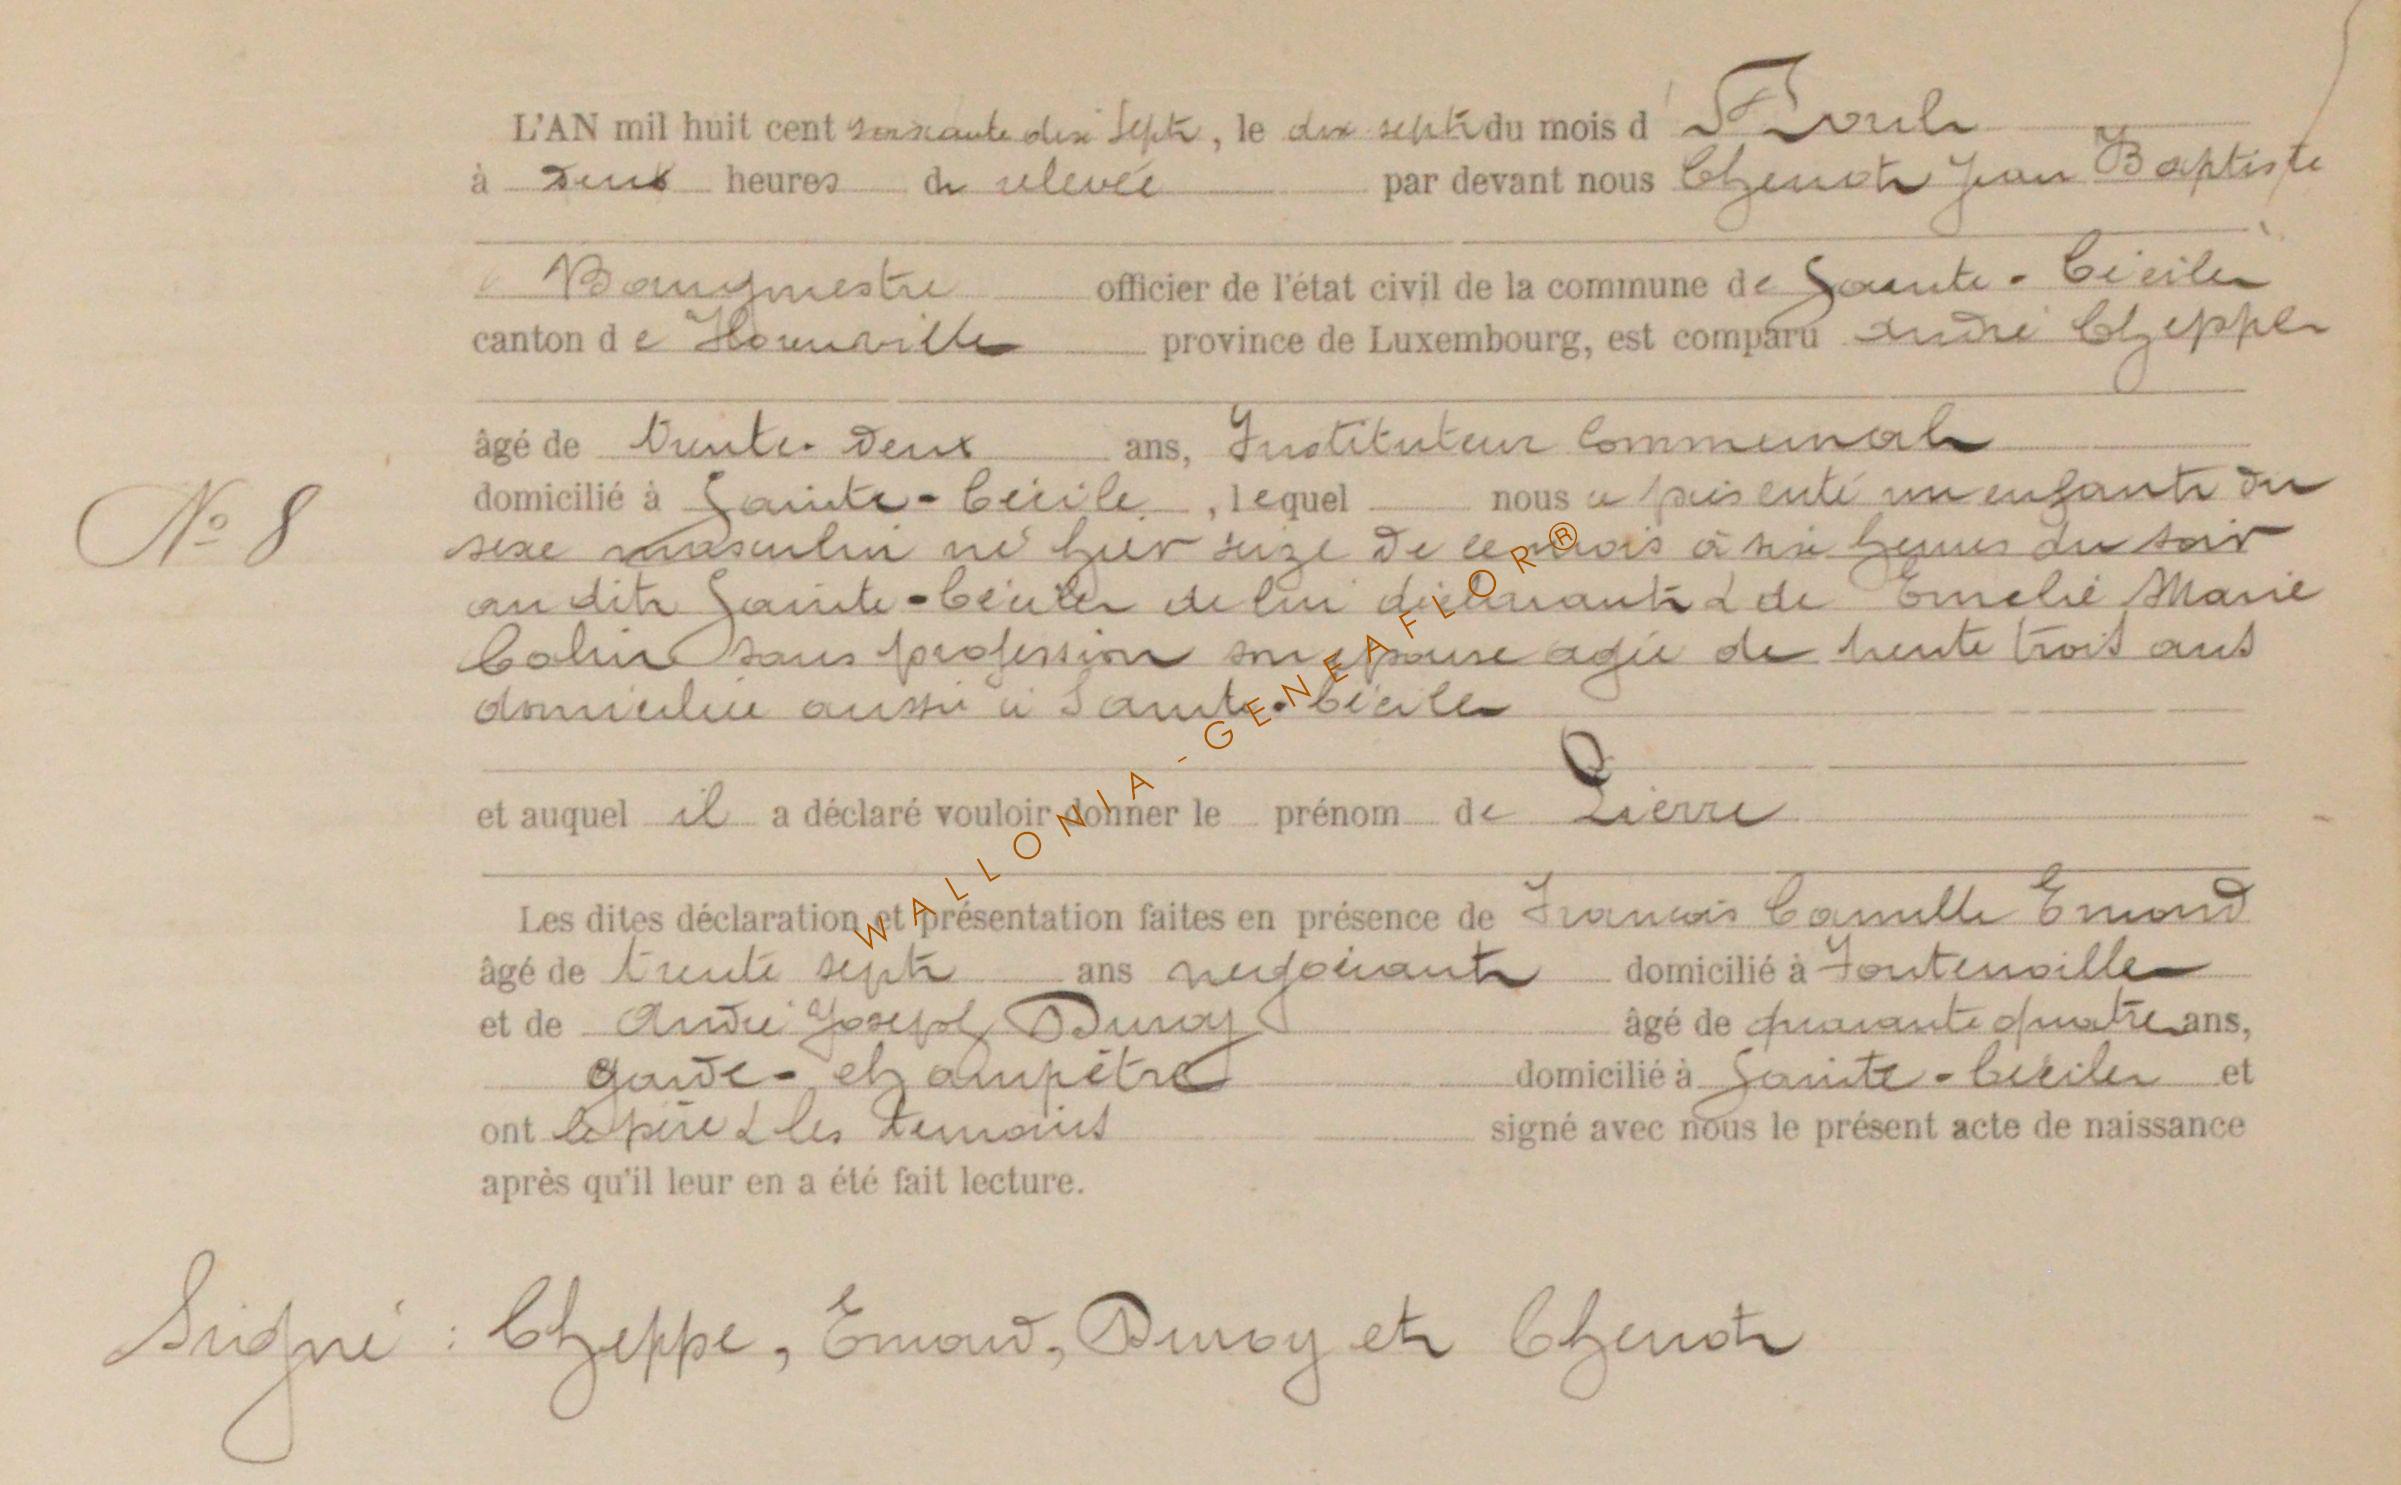 L'AN mil huit cent soixante dix Sept, le dix sept du mois d'Avril
à Deux heures de relevée par devant nous Chenot Jean Baptiste
Bourgmestre officier de l'état civil de la commune de Sainte-Cécile
canton de Florenville province de Luxembourg, est comparu André Cheppe
âgé de trente-deux ans, Instituteur Communal
domicilié à Sainte-Cécile, lequel nous a présenté un enfant du
N° 8
sexe masculin né hier seize de ce mois à six heures du soir
au dit Sainte-Cécile de lui déclarant & de Emelie Marie
Colin sans profession son épouse agée de trente trois ans
domiciliée aussi à Sainte-Cécile
et auquel il a déclaré vouloir donner le prénom de Pierre
Les dites déclaration et présentation faites en présence de François Camille Emond
âgé de trente sept ans negociant domicilié à Fontenoille
et de André Joseph Duroy âgé de quarante quatre ans,
garde-champêtre domicilié à Sainte-Cécile et
ont le père & les temoins signé avec nous le présent acte de naissance
après qu'il leur en a été fait lecture.
Signé : Cheppe, Emond, Duroy et Chenot
WALLONIA - GENEAFLOR®